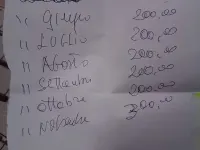 " Giugno 200,00
" LUGLIO 200,00
" AGOSTO 200,00
" Settembre 200,00
" ottobre 200,00
" Novembre 300,00